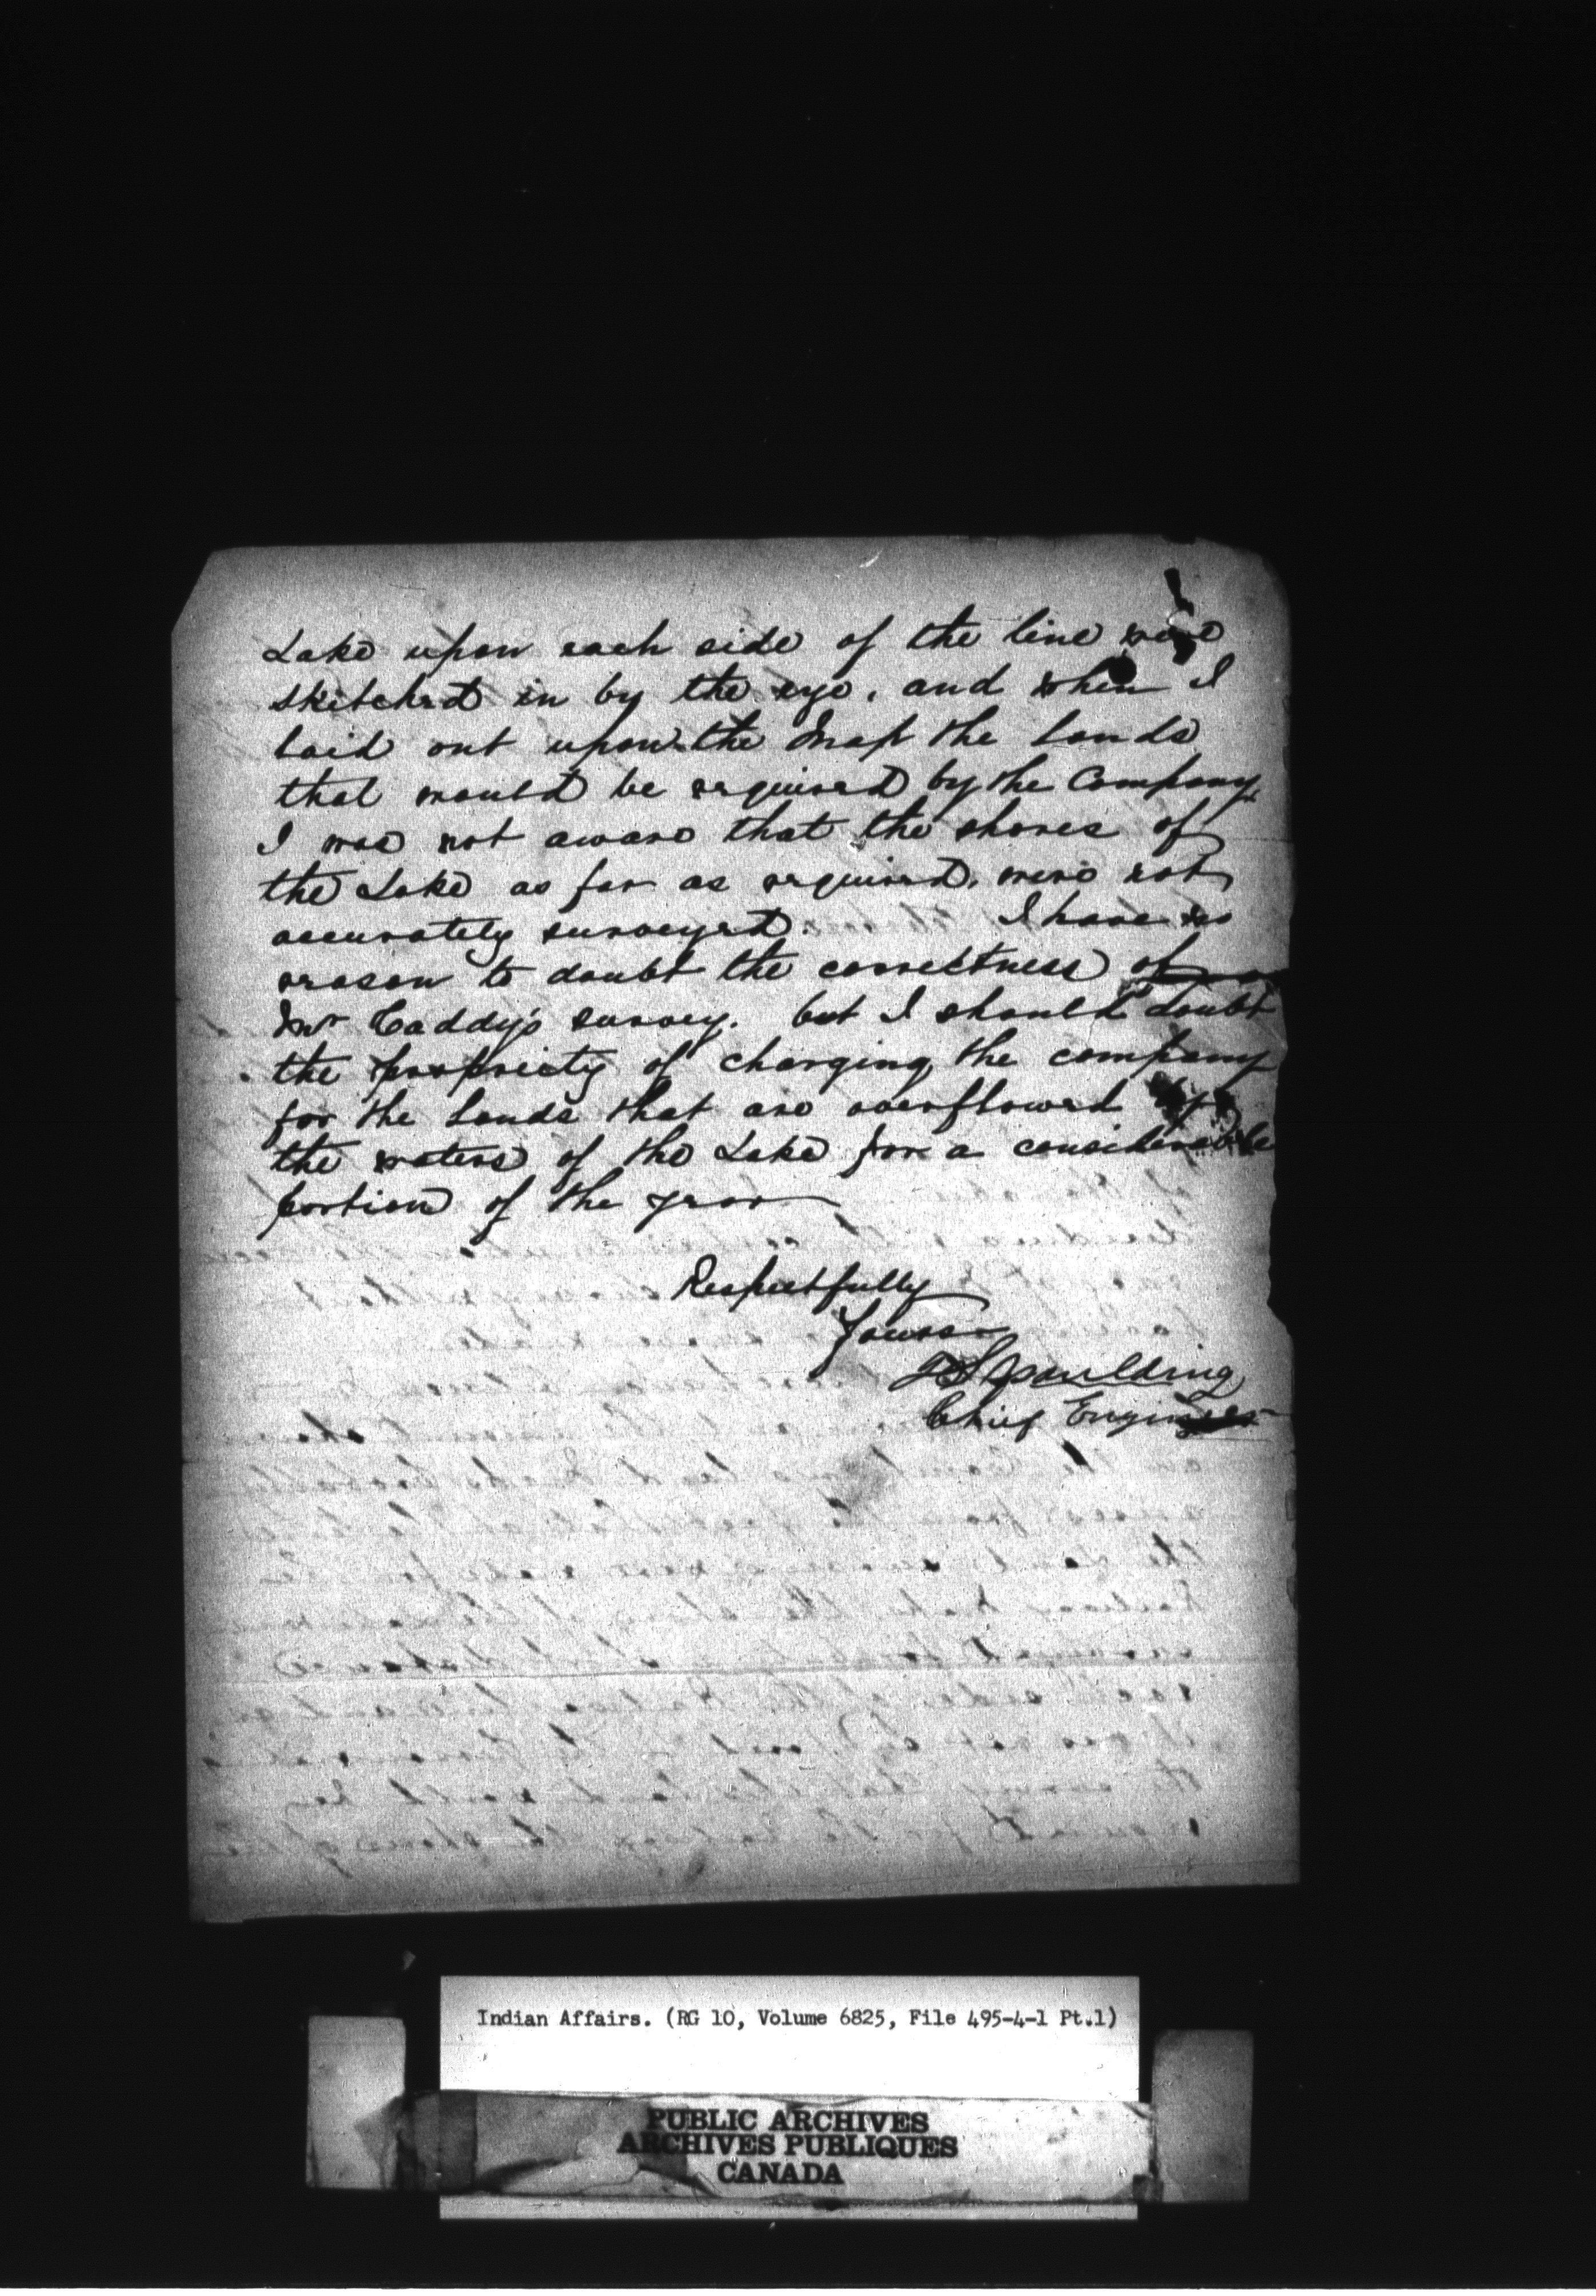 Lake upon each side of the line were
sketched in by the eye. and when I
laid out upon the Map the lands
that would be required by the Company
I was not aware that the shores of
the Lake as far as required, were not
accurately surveyed. I have no
reason to doubt the correctness of
Mr Caddy's survey. but I should doubt
the propriety of charging the company
for the lands that are overflowed by
the waters of the Lake for a considerable
portion of the year
Respectfully
Yours
Spaulding
Chief Engineer
Indian Affairs. (RG 10, Volume 6825, File 495-4-1 Pt.1)
PUBLIC ARCHIVES
ARCHIVES PUBLIQUES
CANADA